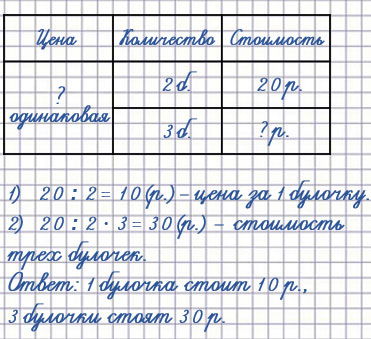 Цена Количество Стоимость
? 2 б. 20 р.
одинаковая 3 б. ? р.
1) 20 : 2 = 10 (р.) – цена за 1 булочку.
2) 20 : 2 · 3 = 30 (р.) – стоимость
трех булочек.
Ответ: 1 булочка стоит 10 р.,
3 булочки стоят 30 р.